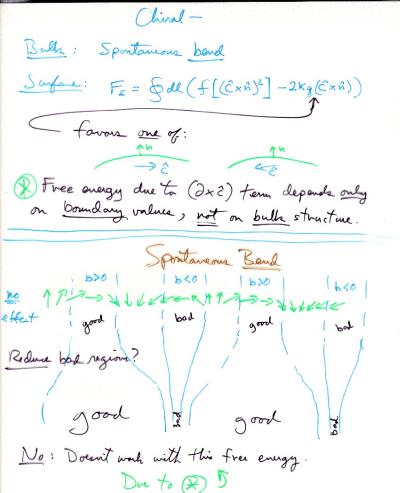 Chiral –
Bulk: Spontaneous bend
Surface: F_s = ∮dl (f[(ĉ×n̂)²] − 2Kq(ĉ×n̂))
favors one of:
n n
ĉ ĉ
(*) Free energy due to (∂×ĉ) term depends only
on boundary values, not on bulk structure.
Spontaneous Bend
b>0 b<0 b>0 b<0
no
effect
good bad good bad
Reduce bad regions?
good bad good bad
No: Doesn't work with this free energy.
Due to (*)